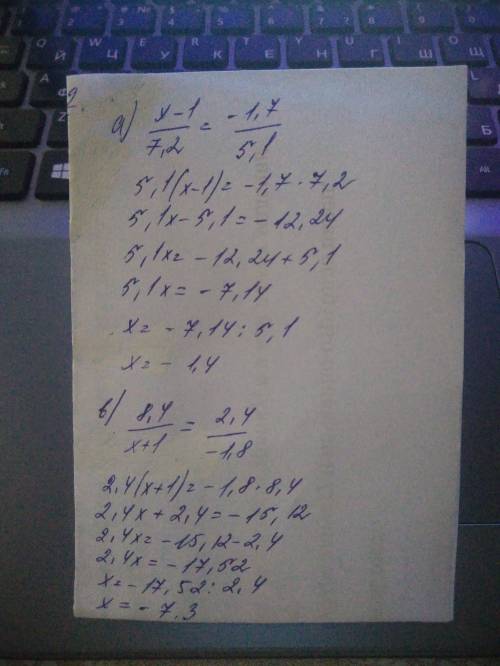 а) x-1/7,2 = -1,7/5,1
5,1(x-1)= -1,7·7,2
5,1x-5,1= -12,24
5,1x= -12,24+5,1
5,1x= -7,14
x= -7,14:5,1
x= -1,4
в) 8,4/x+1 = 2,4/-1,8
2,4(x+1)= -1,8·8,4
2,4x+2,4= -15,12
2,4x= -15,12-2,4
2,4x= -17,52
x= -17,52:2,4
x= -7.3